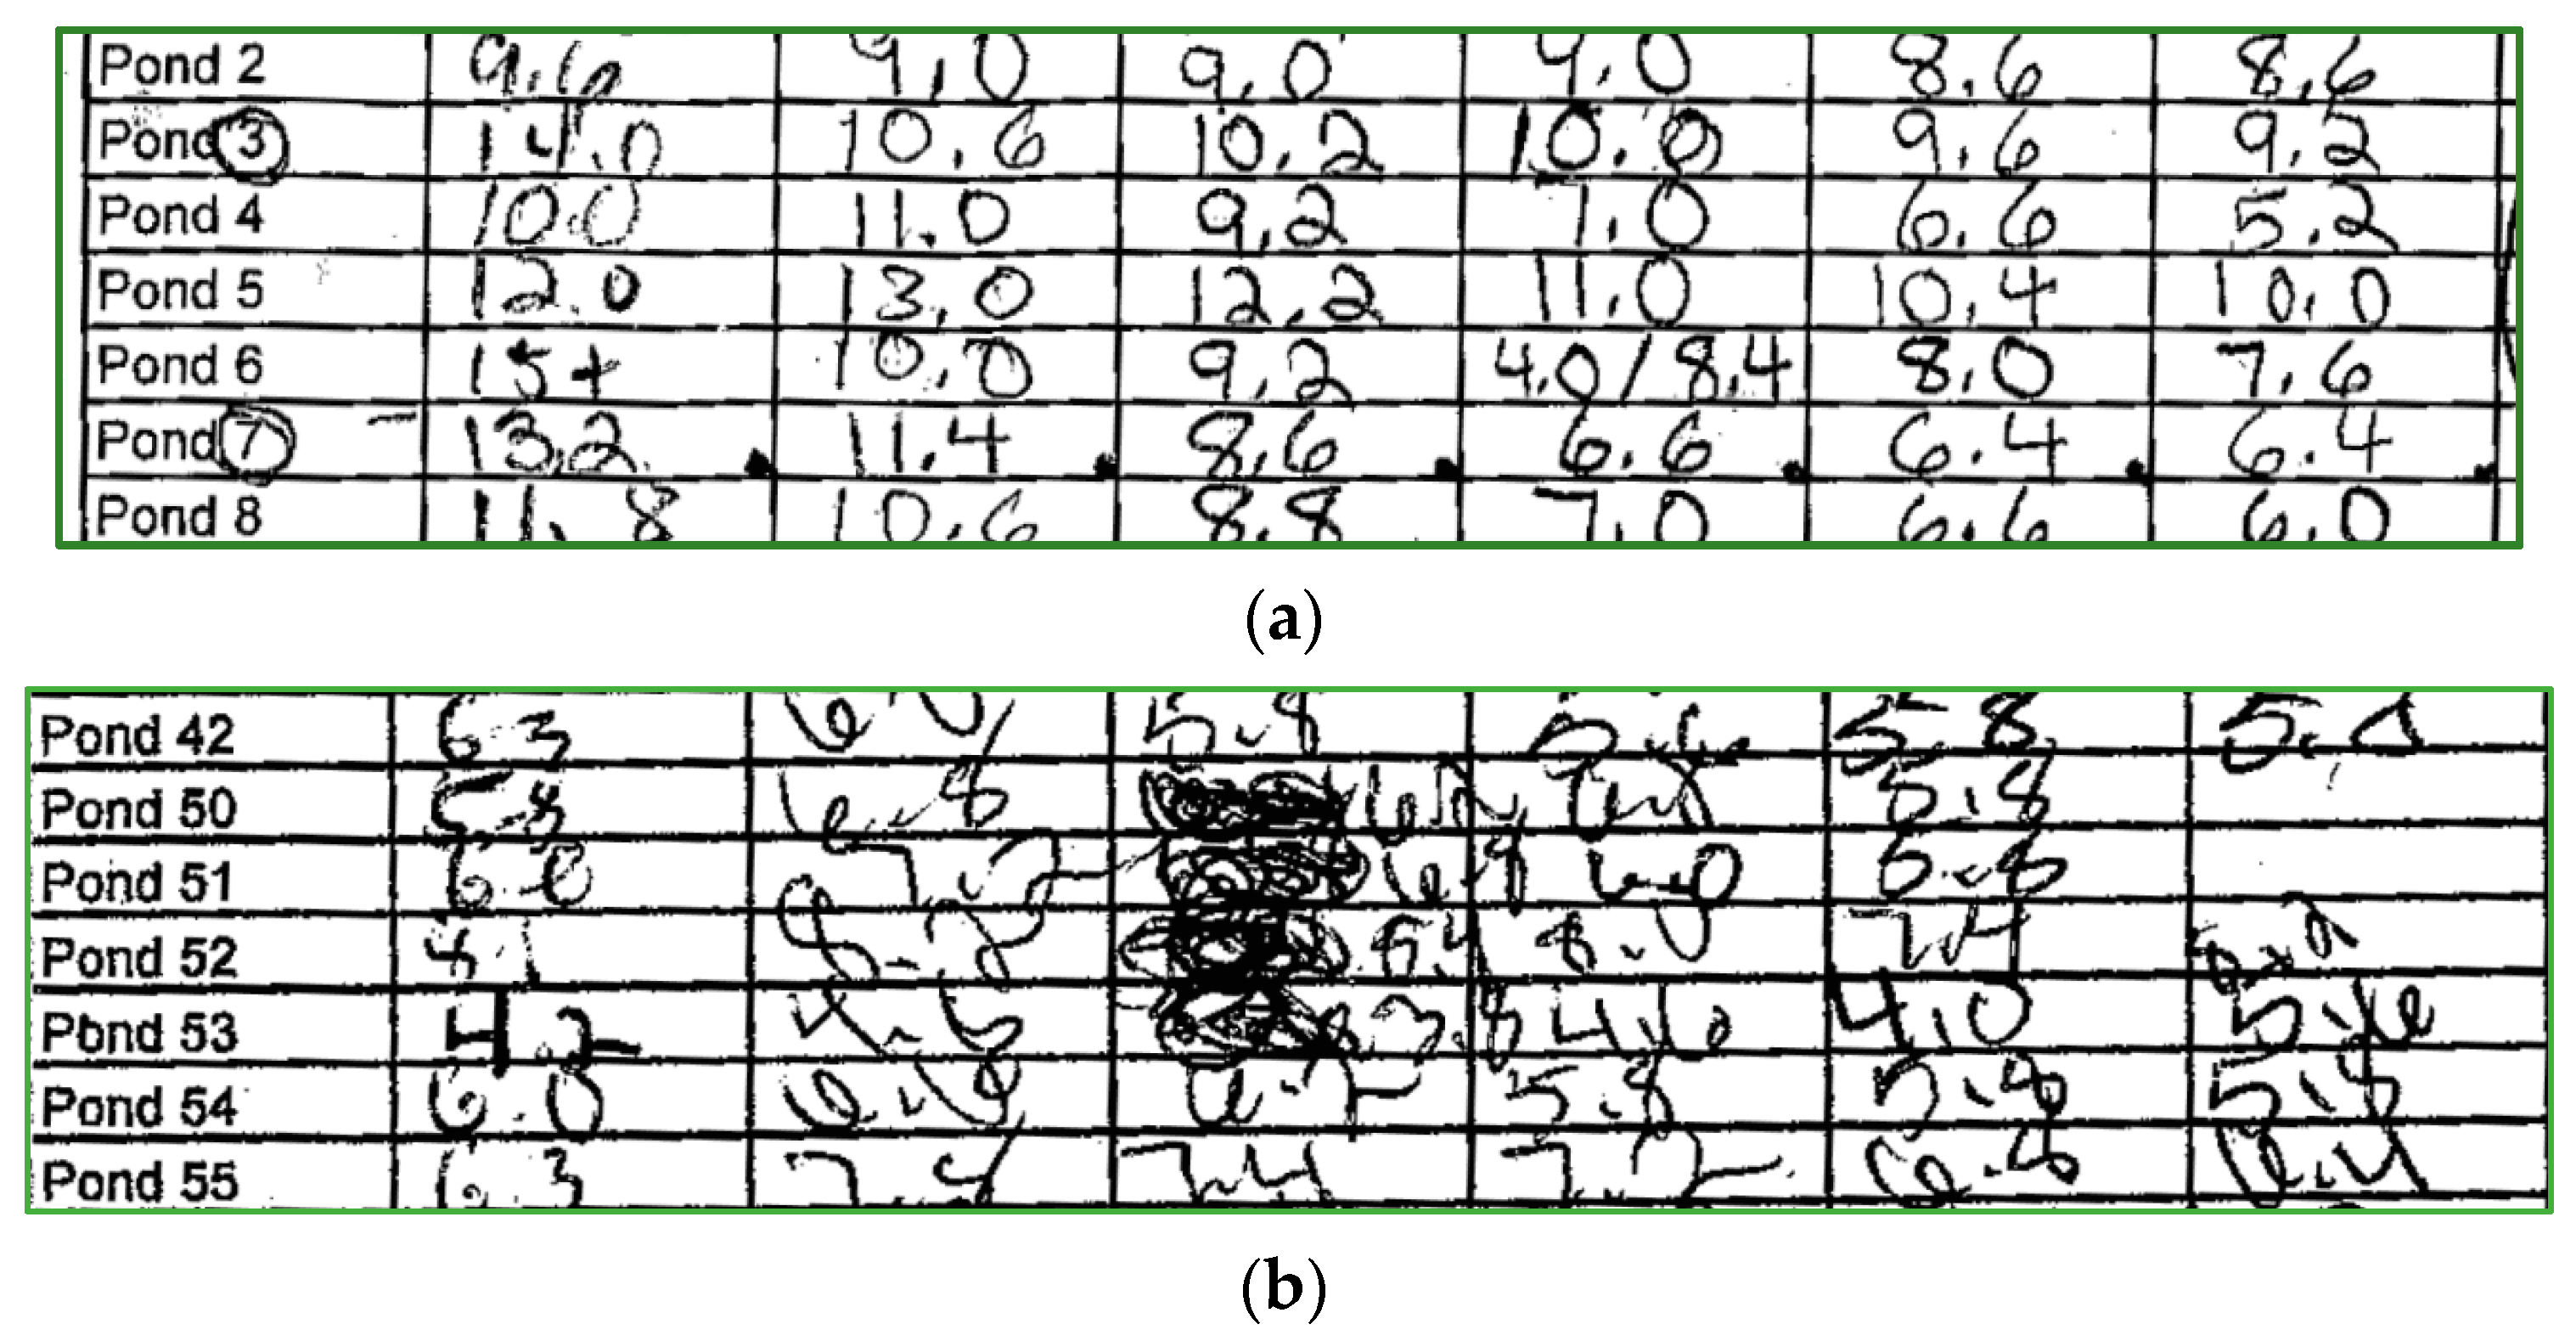 Pond 2 9.6 9.0 9.0 9.0 8.6 8.6
Pond 3 14.0 10.6 10.2 10.0 9.6 9.2
Pond 4 10.0 11.0 9.2 7.0 6.6 5.2
Pond 5 12.0 13.0 12.2 11.0 10.4 10.0
Pond 6 15+ 10.0 9.2 4.0/8.4 8.0 7.6
Pond 7 13.2 11.4 8.6 6.6 6.4 6.4
Pond 8 11.8 10.6 8.8 7.0 6.6 6.0
(a)
Pond 42 6.3 5.8 5.8
Pond 50 6.8 5.8
Pond 51 6.0 7.2 6.8 6.0 5.8
Pond 52 8.0 7.4
Pond 53 4.2 4.6 4.0 5.6
Pond 54 6.0 6.2 5.8 5.8 5.8
Pond 55 6.3 7.4 7.2 6.8 6.4
(b)